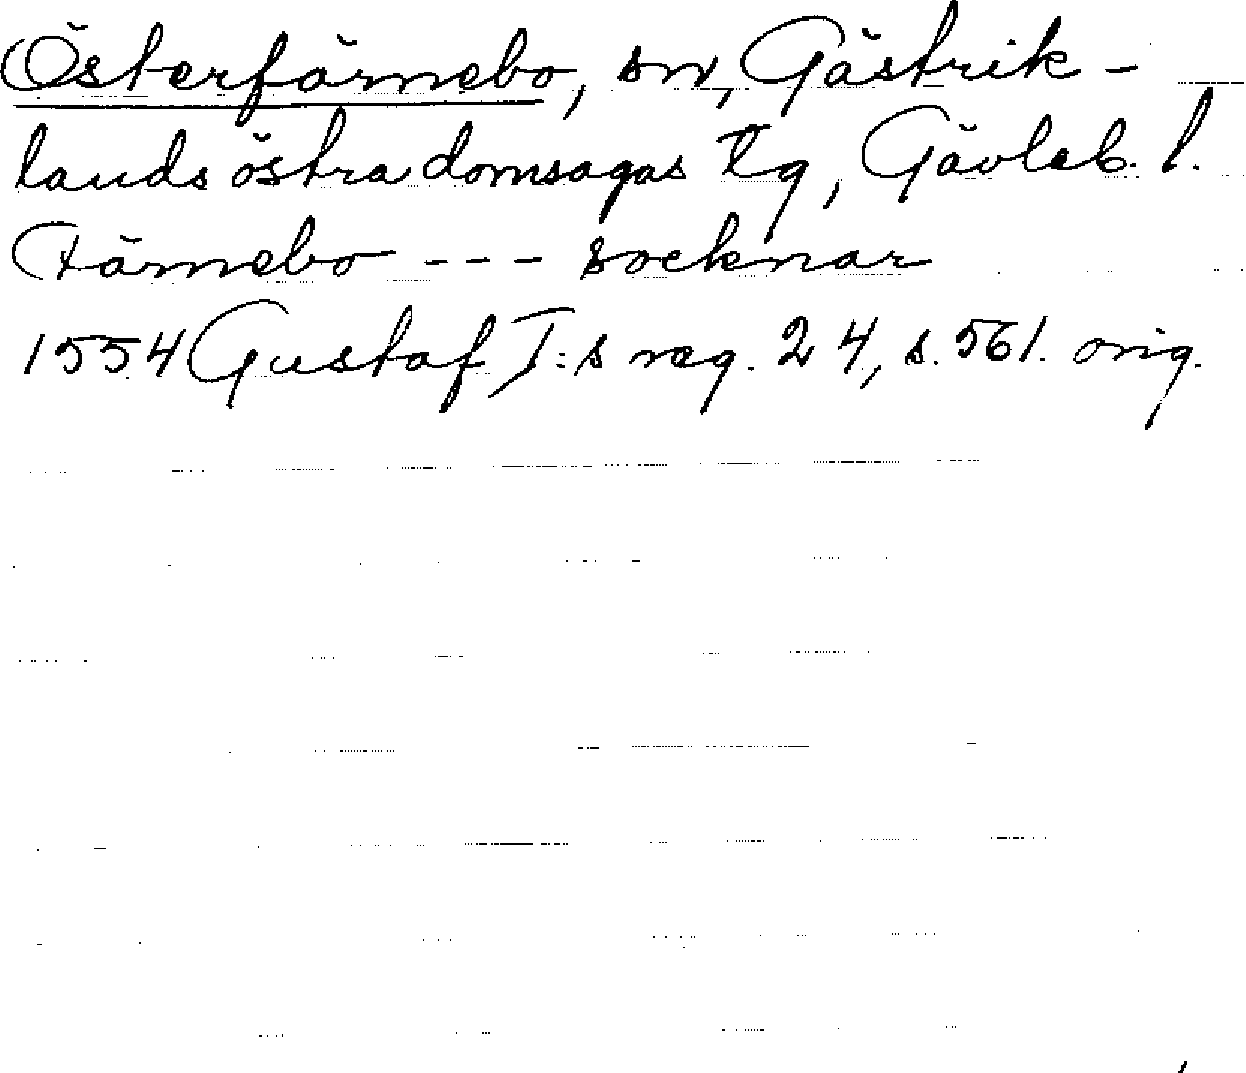 Österfärnebo, sn, Gästrik-
lands östra domsagas tlg, Gävleb. l.
Färnebo --- socknar
1554 Gustaf I:s reg. 24, s. 561. orig.